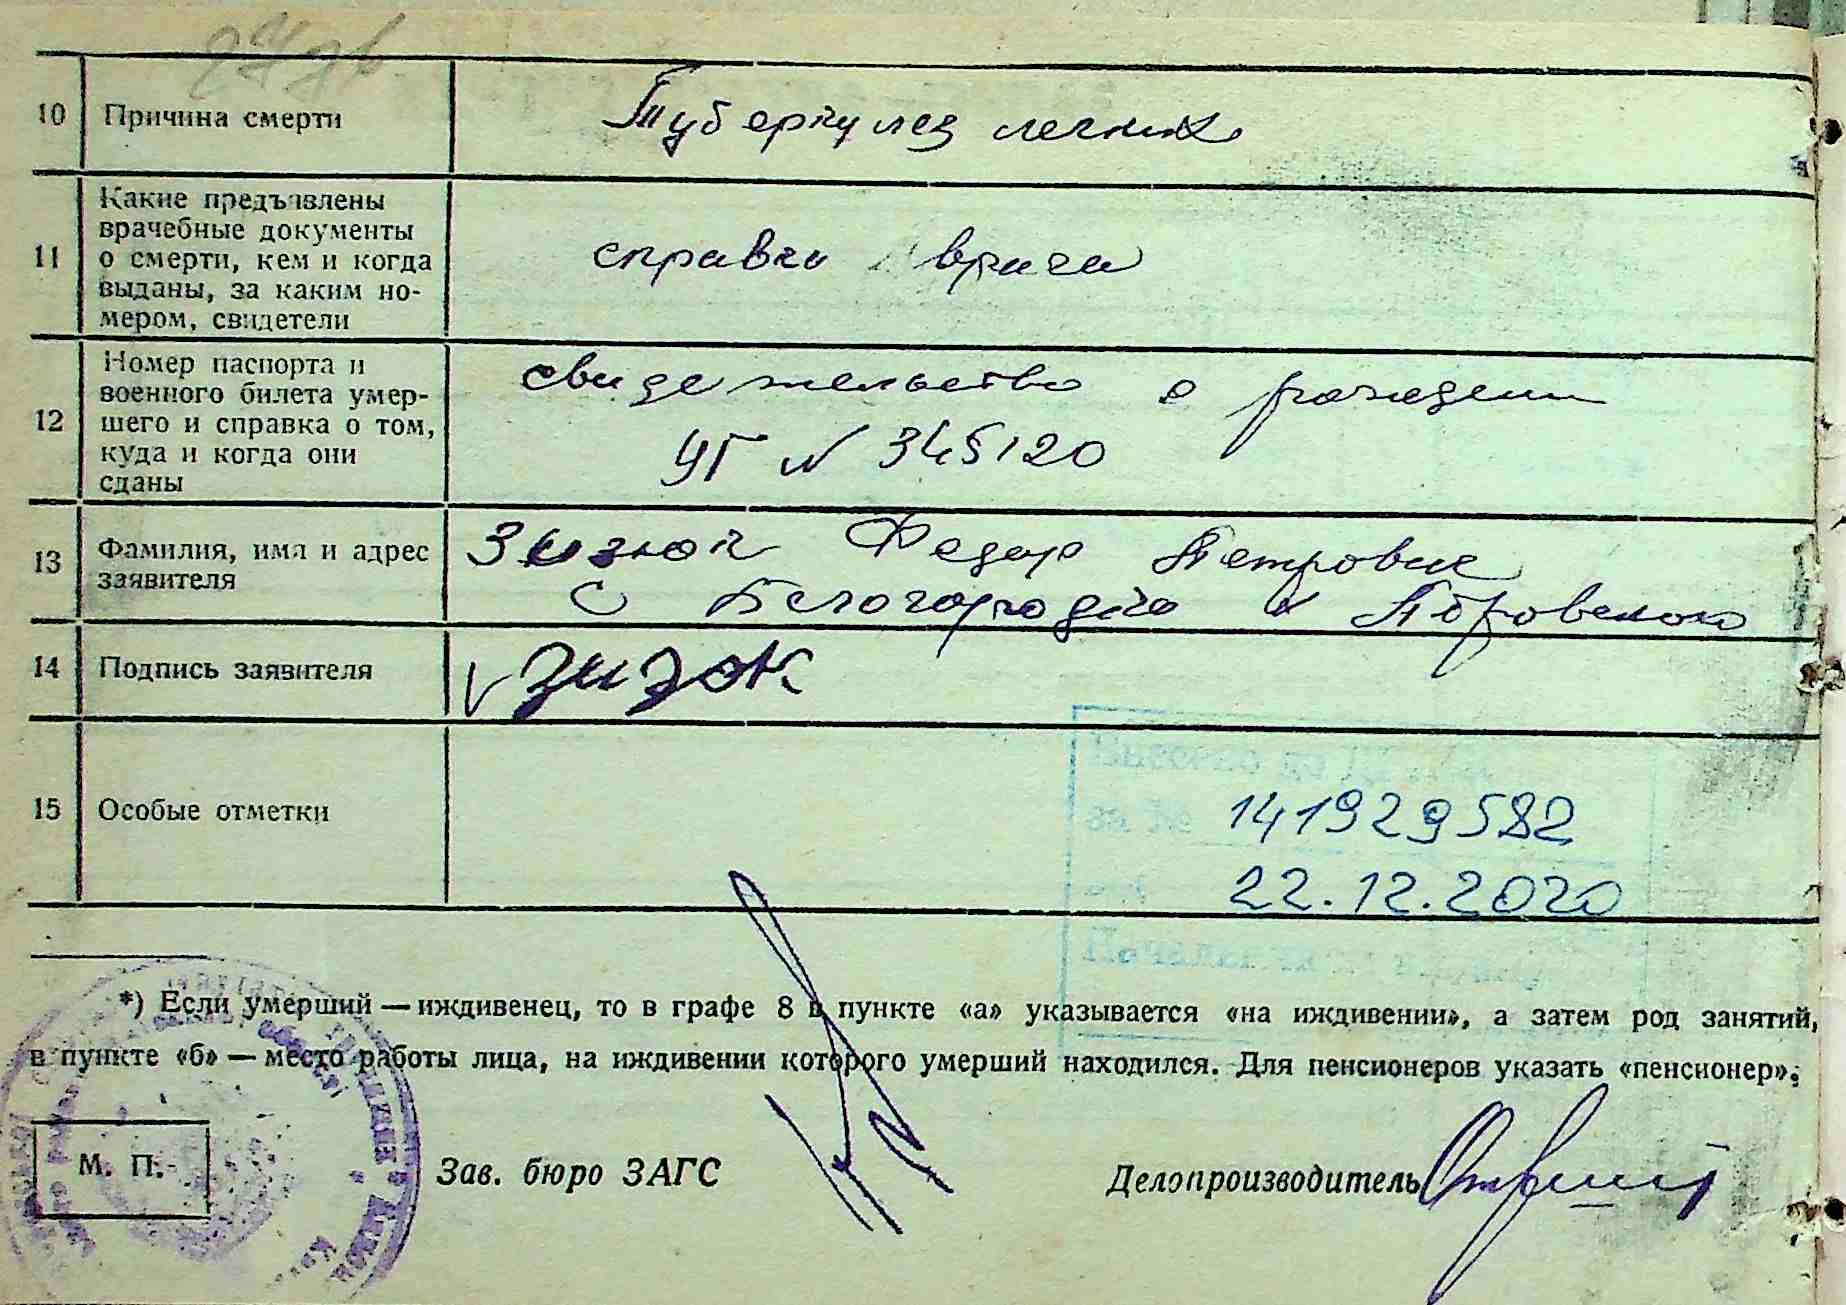 10 Причина смерти Туберкулез легких
11 Какие предъявлены
врачебные документы
о смерти, кем и когда
выданы, за каким но-
мером, свидетели
справка врача
12 Номер паспорта и
военного билета умер-
шего и справка о том,
куда и когда они
сданы
свидетельство о рождении
УГ N 345120
13 Фамилия, имя и адрес
заявителя
Зизюк Федор Петрович
с Белогородка
14 Подпись заявителя Зизюк
15 Особые отметки
за № 141929582
22.12.2020
*) Если умерший — иждивенец, то в графе 8 в пункте «а» указывается «на иждивении», а затем род занятий,
в пункте «б» — место работы лица, на иждивении которого умерший находился. Для пенсионеров указать «пенсионер».
М. П.
Зав. бюро ЗАГС
Делопроизводитель